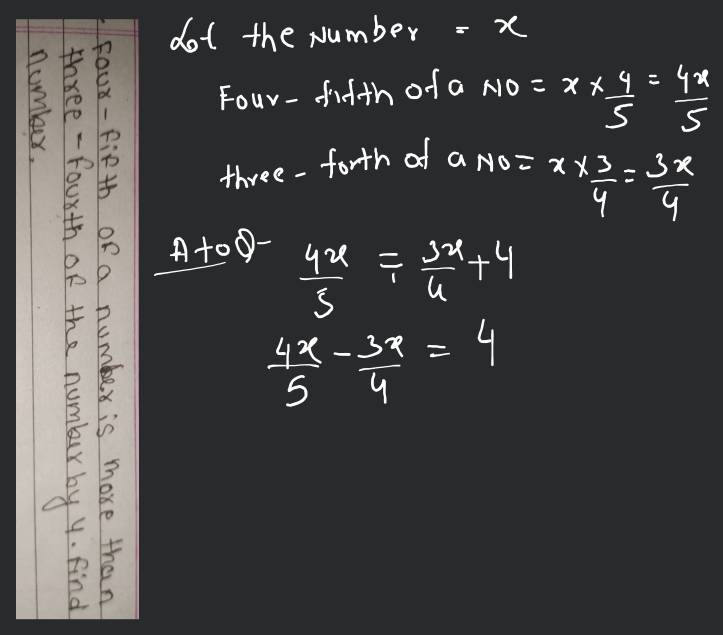 Four-fifth of a number is more than
three-fourth of the number by 4. Find
number.
Let the Number = x
Four-fifth of a NO = x × 4/5 = 4x/5
three-forth of a NO = x × 3/4 = 3x/4
A to Q-
4x/5 = 3x/4 + 4
4x/5 - 3x/4 = 4